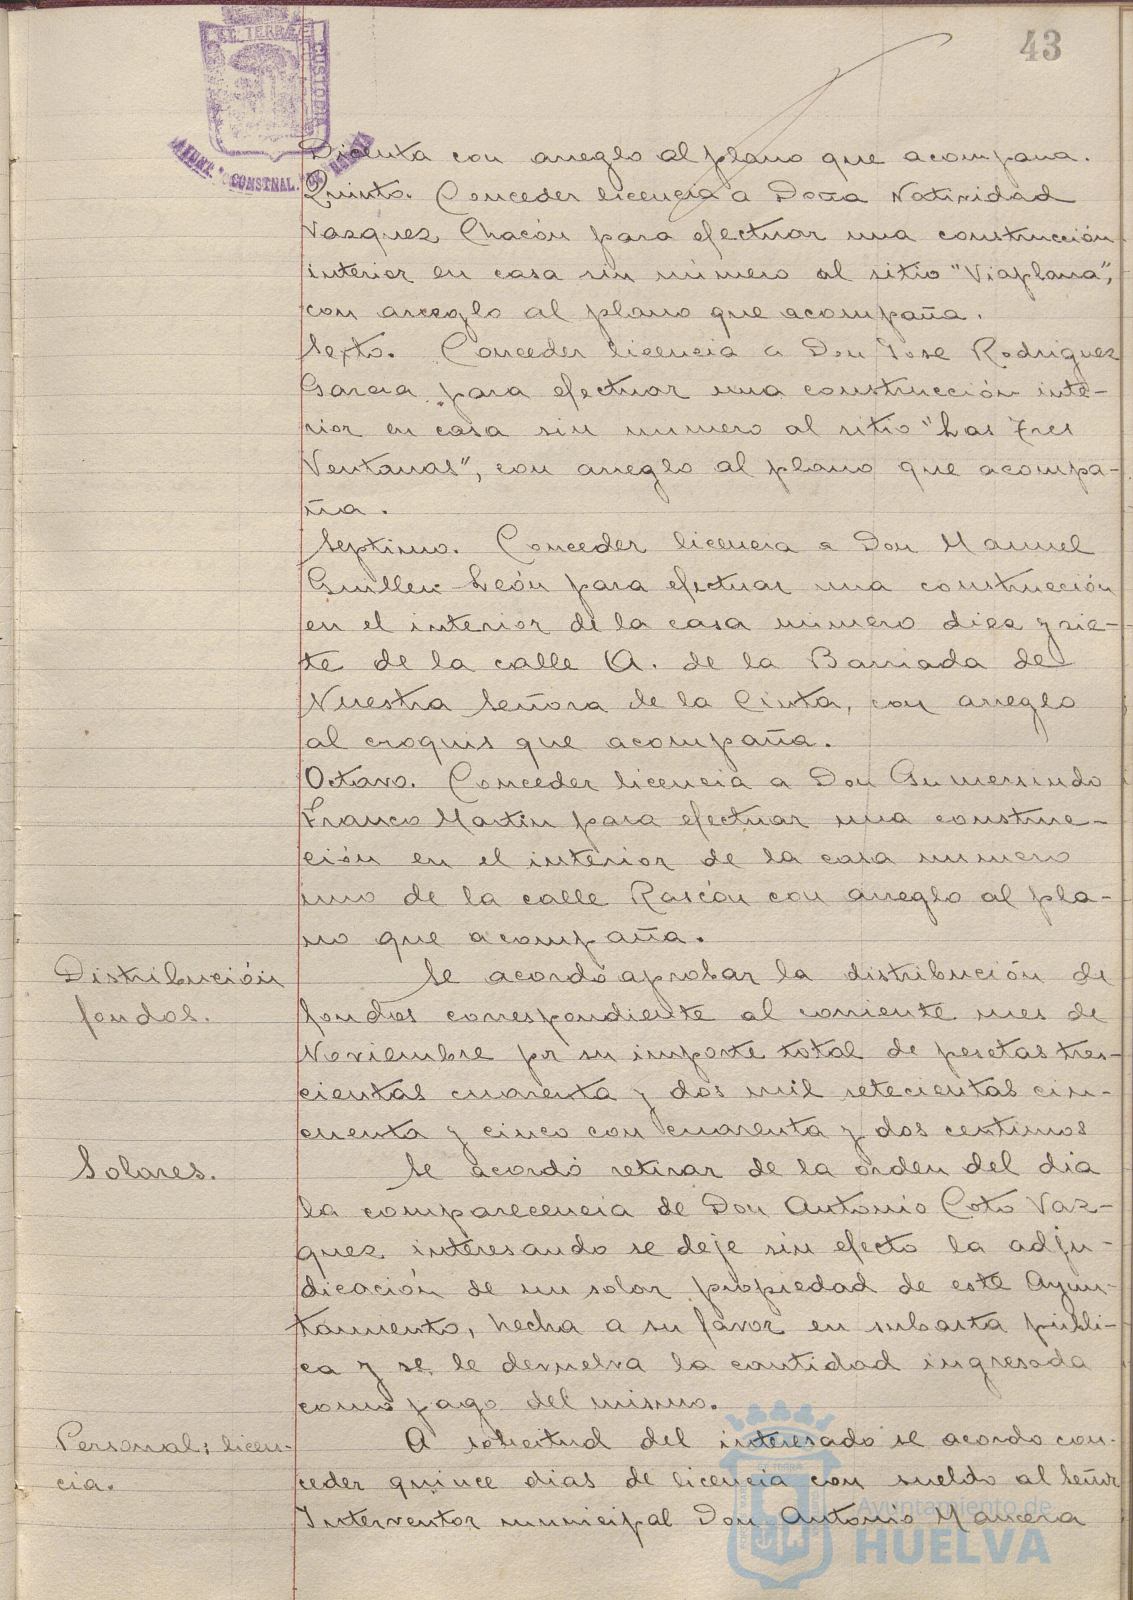 43
ET TERRÆ CUSTODIA
AYUNT. CONSTNAL. DE HUELVA
con arreglo al plano que acompaña.
Quinto. Conceder licencia a Doña Natividad
Vazquez Chacón para efectuar una construcción
interior en casa sin número al sitio "Viaplana",
con arreglo al plano que acompaña.
Sexto. Conceder licencia a Don Jose Rodriguez
Garcia para efectuar una construcción inte-
rior en casa sin numero al sitio "Las Tres
Ventanas", con arreglo al plano que acompa-
ña.
Septimo. Conceder licencia a Don Manuel
Guillen León para efectuar una construcción
en el interior de la casa numero diez y sie-
te de la calle A. de la Barriada de
Nuestra Señora de la Cinta, con arreglo
al croquis que acompaña.
Octavo. Conceder licencia a Don Gumersindo
Franco Martin para efectuar una construc-
ción en el interior de la casa numero
uno de la calle Rascón con arreglo al pla-
no que acompaña.
Distribución
fondos.
Se acordó aprobar la distribución de
fondos correspondiente al corriente mes de
Noviembre pr su importe total de pesetas tres-
cientas cuarenta y dos mil setecientas cin-
cuenta y cinco con cuarenta y dos centimos
Solares.
Se acordó retirar de la orden del dia
la comparecencia de Don Antonio Coto Vaz-
quez interesando se deje sin efecto la adju-
dicación de un solar propiedad de este Ayun-
tamiento, hecha a su favor en subasta públi-
ca y se le devuelva la cantidad ingresada
como pago del mismo.
Personal: licen-
cia.
A solicitud del interesado se acordo con-
ceder quince dias de licencia con sueldo al Señor
Interventor municipal Don Antonio Mancera
Ayuntamiento de
HUELVA